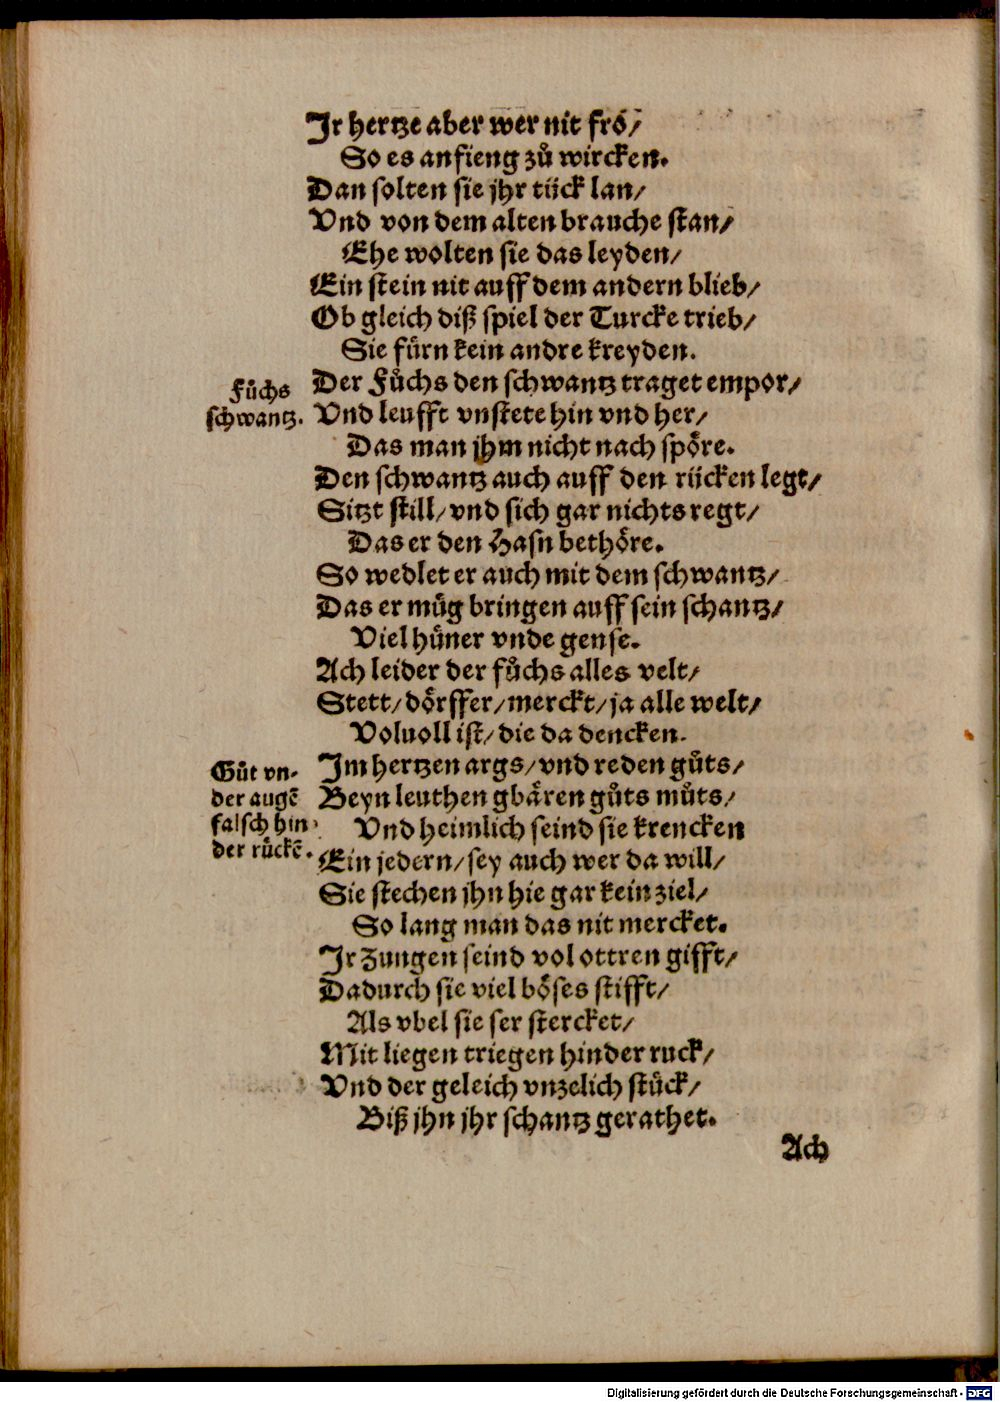 Jr hertze aber wer nit frő/
So es anfieng zů wircken.
Dan solten sie jhr tück lan/
Vnd von dem alten brauche stan/
Ehe wolten sie das leyden/
Ein stein nit auff dem andern blieb/
Ob gleich diß spiel der Turcke trieb/
Sie fürn kein andre kreyden.
Fůchs
schwantz.
Der Fůchs den schwantz traget empor/
Vnd leufft vnstete hin vnd her/
Das man jhm nicht nach spőre.
Den schwantz auch auff den rücken legt/
Sitzt still/ vnd sich gar nichts regt/
Das er den Hasn bethőre.
So wedlet er auch mit dem schwantz/
Das er műg bringen auff sein schantz/
Viel hűner vnde gense.
Ach leider der fůchs alles velt/
Stett/ dőrffer/ merckt/ ja alle welt/
Voluoll ist/ die da dencken.
Gůt vn-
der augē
falsch hin
der rückē.
Im hertzen args/ vnd reden gůts/
Beyn leuthen gbären gůts můts/
Vnd heimlich seind sie krencken
Ein jedern/ sey auch wer da will/
Sie stechen jhn hie gar kein ziel/
So lang man das nit mercket.
Jr Zungen seind vol ottren gifft/
Dadurch sie viel bőses stifft/
Als vbel sie ser stercket/
Mit liegen triegen hinder ruck/
Vnd der geleich vnzelich stűck/
Biß jhn jhr schantz gerathet.
Ach
Digitalisierung gefördert durch die Deutsche Forschungsgemeinschaft - DFG